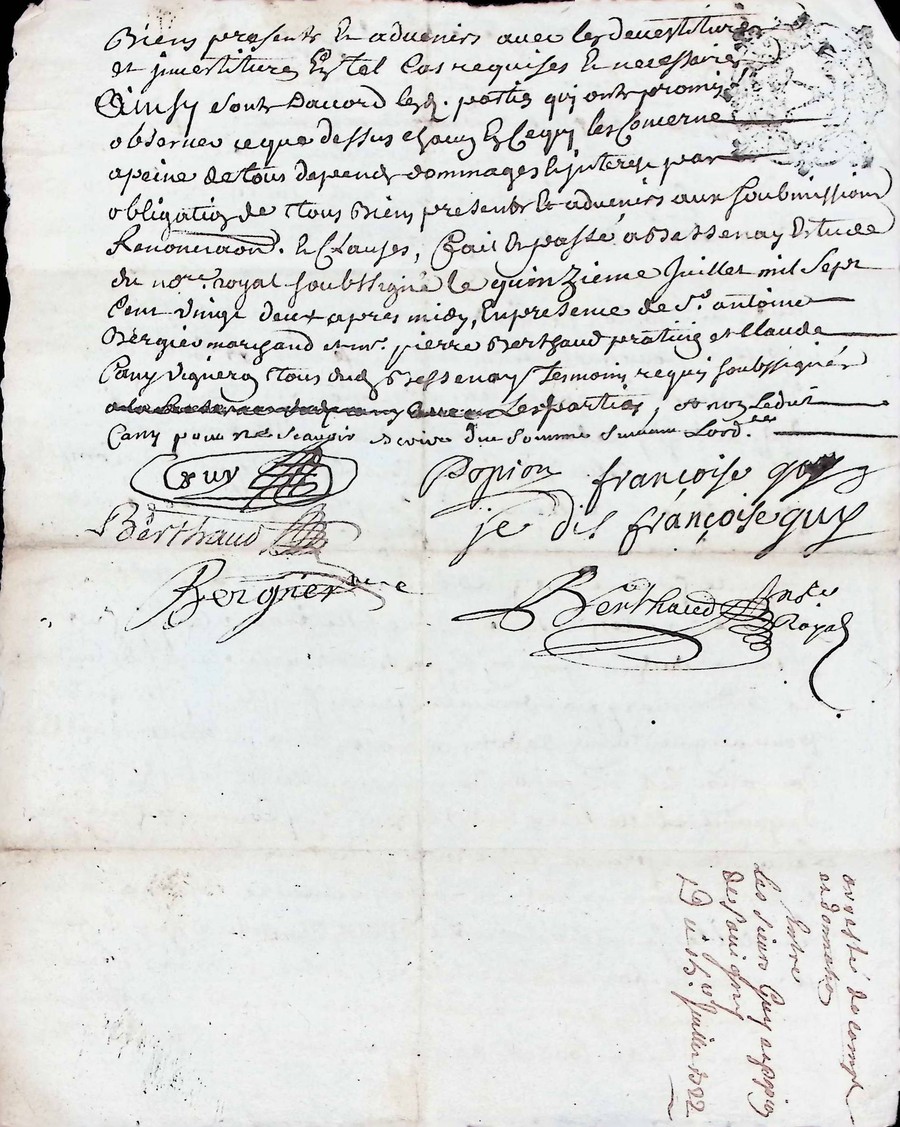 Biens presents et advenirs avec les devestitures
et jnvestitures En tel Cas requises et necessaires
Ainsy sont Daccord lesd. parties quj ont promis
observer ce que dessus chacun En ce quj les Concerne
a peine de tous depends dommages et jnterest par
obligation de tous Biens presents Et advenirs aux soubmissions
Renonciaons. et Clauses, fait et passé, a Bessenay Estude
du nore. royal soubssigné le quinzieme Juillet mil Sept
Cent vingt deux apres midy, En presence de Sr. antoine
Bergier marchand et me. pierre Berthaud praticien et Claude
Cany vigneron tous dud. Bessenay tesmoins requis soubssignés
Les parties, et non Ledit
Cany pour ne scavoir escrire de ce sommé suivant Lord.ce
Guy
Popion françoise guy
Berthaud
je dis françoise guy
Bergier
Berthaud nore Royal
arresté de compte
et donnation
Entre
Les sieurs Guy et popion
de
Du 15e. Juillet 1722